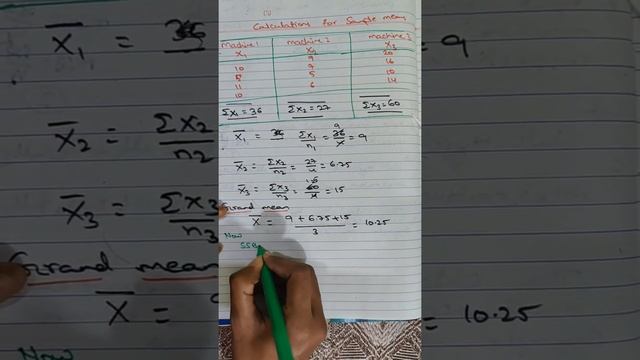 Calculations for Sample mean
machine 1 machine 2 machine 3
X1 X2 X3
9 20
10 7 16
5 5 10
11 6 14
10
Σx1 = 36 Σx2 = 27 Σx3 = 60
X̄1 = Σx1/n1 = 36/4 = 9
X̄2 = Σx2/n2 = 27/4 = 6.75
X̄3 = Σx3/n3 = 60/4 = 15
Grand mean
X̄ = 9 + 6.75 + 15 / 3 = 10.25
Now
SSB
X̄1 =
= 9
X̄2 = Σx2/n2
X̄3 = Σx3/n3
Grand mean
X̄ =
= 10.25
Now